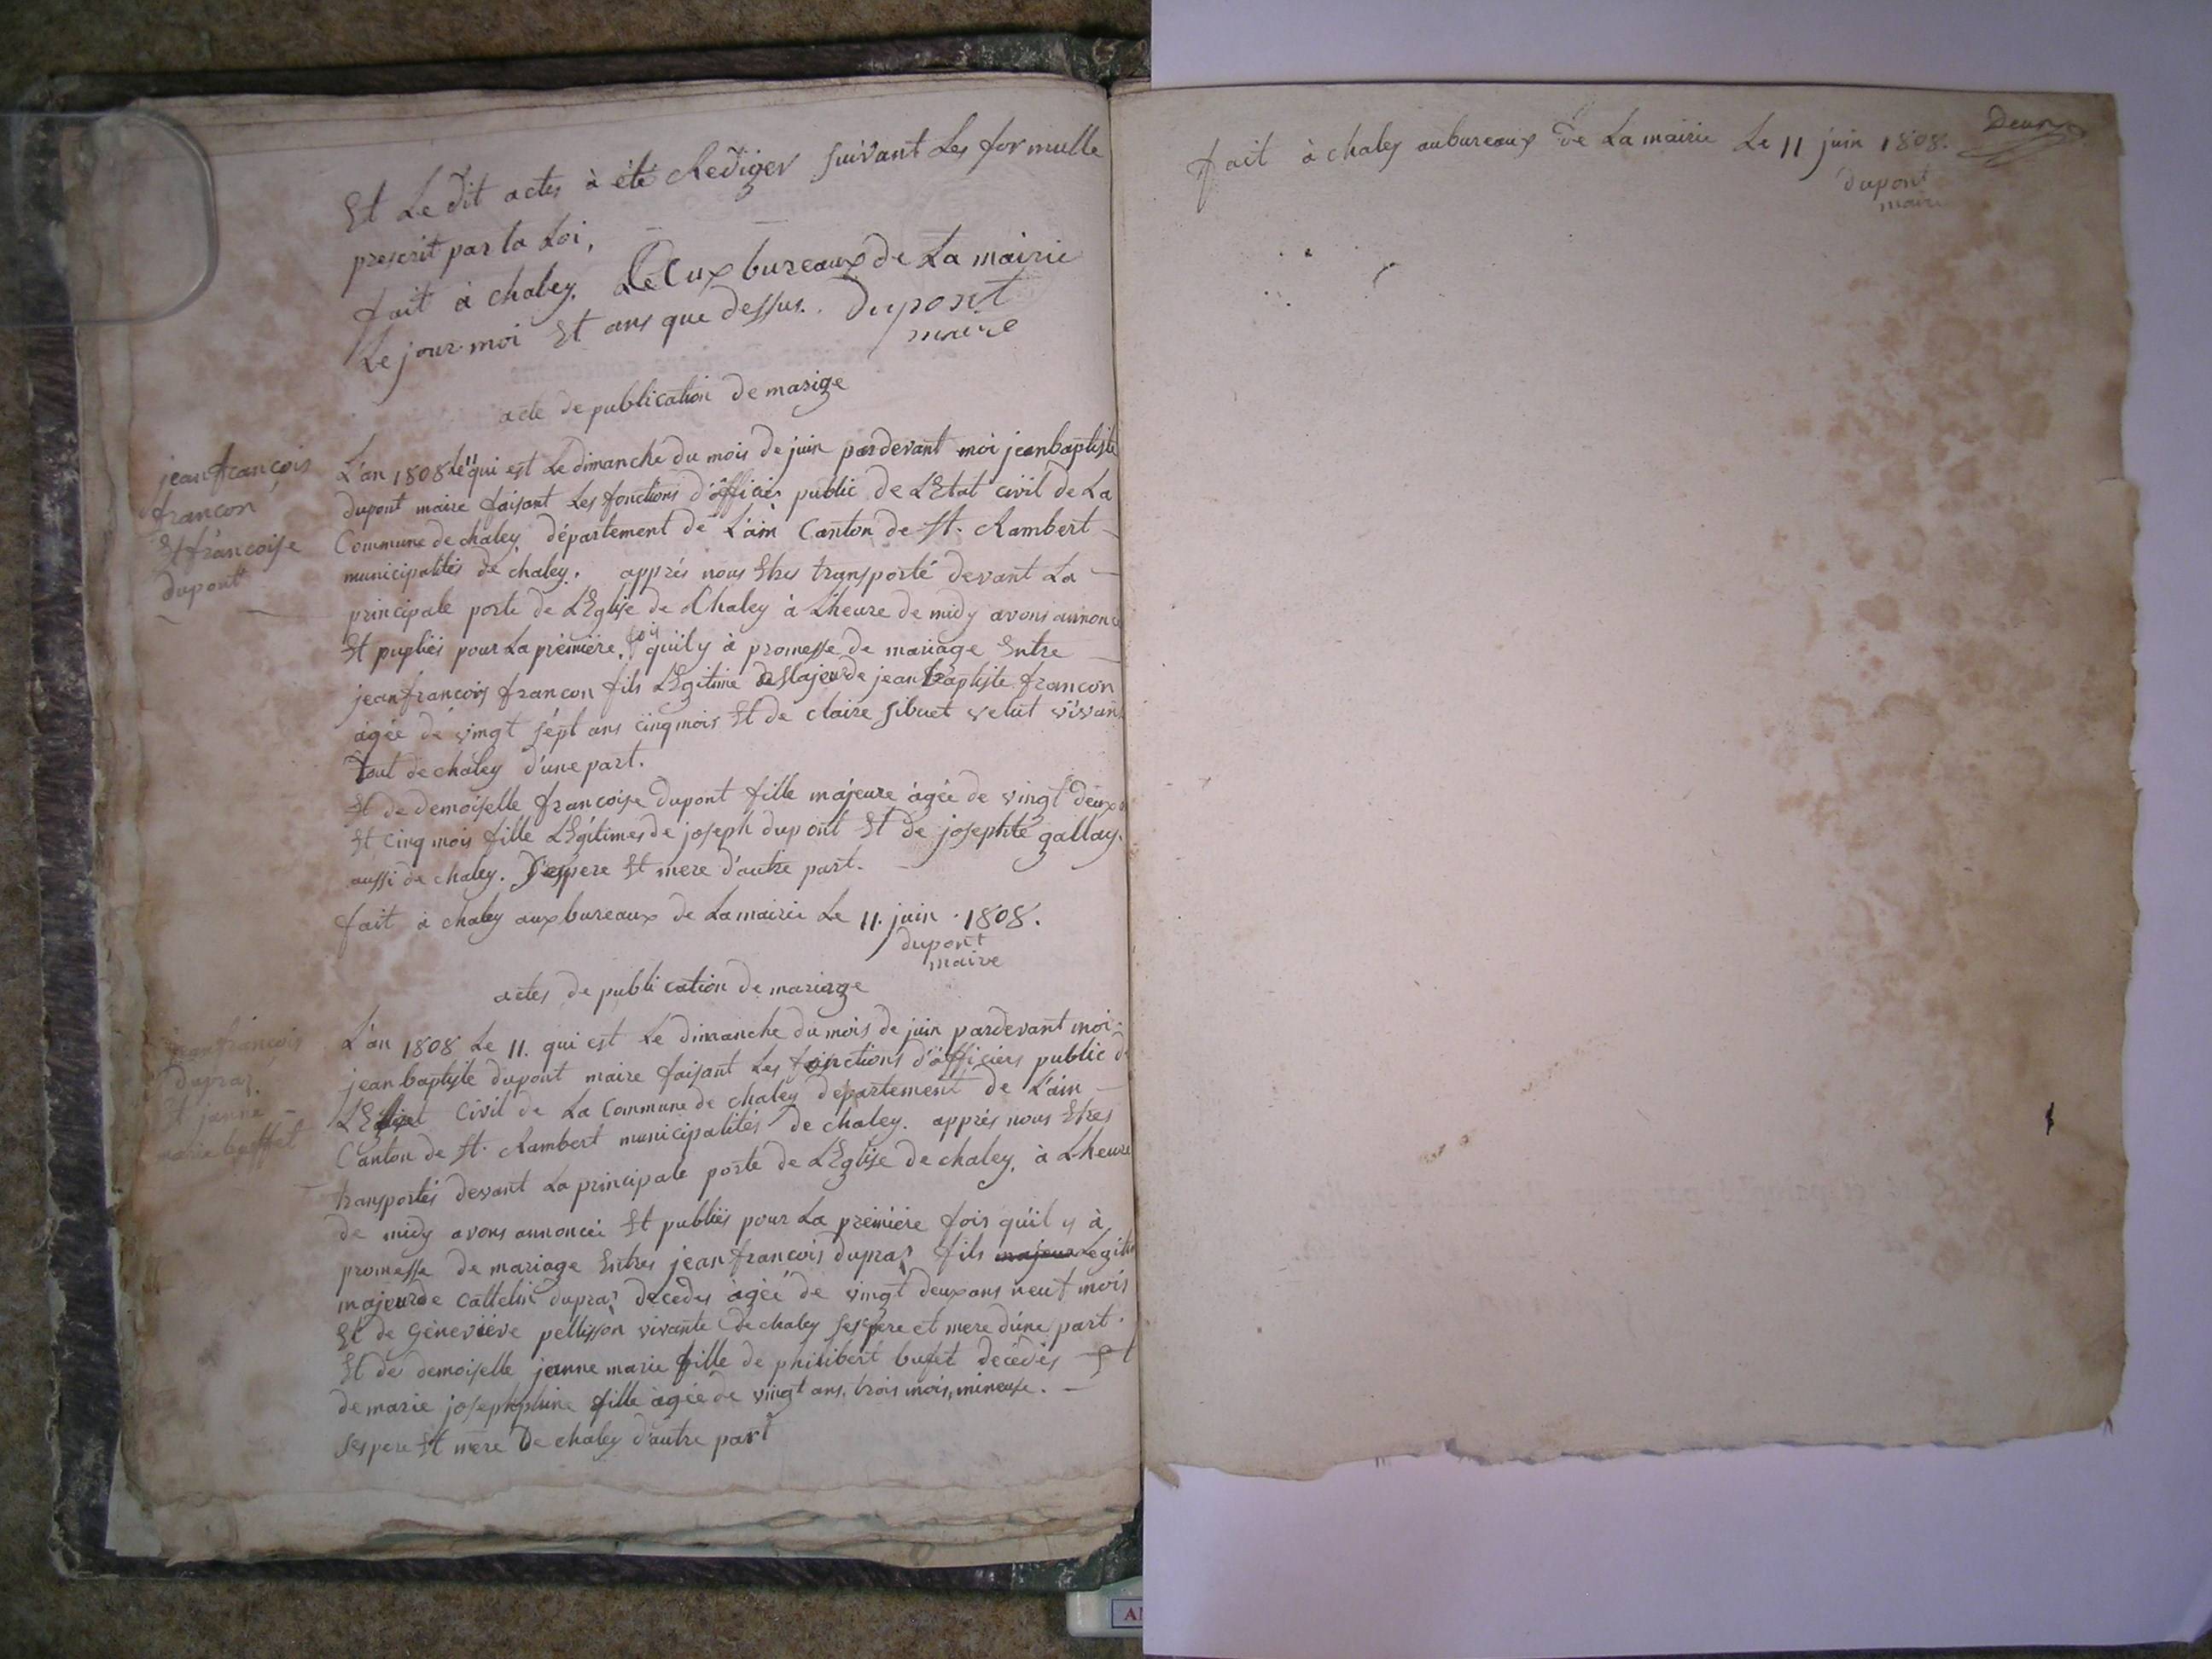 Et Le dit actes à été Rediger suivant Les formulle
prescrit par la Loi,
fait à chaley. aux bureaux de La mairie
Le jour moi Et ans que dessus. dupont
maire
acte de publication de marige
jean francois
francon
Et francoise
dupont
L'an 1808 Le 11 qui est Le dimanche du mois de juin pardevant moi jean baptiste
dupont maire faisant Les fonctions d'officier public de L'Etat civil de La
Commune de chaley département de L'ain Canton de St. Rambert
municipalités de chaley. apprés nous Etres transporté devant La
principale porte de L'Eglise de Chaley à L'heure de midy avons annoncé
Et puplies pour La premiere fois qu'il y à promesse de mariage Entre
jean francois francon fils LEgitime Majeur de jean baptiste francon
agée de vingt sépt ans cinq mois Et de claire sibuet vivant
tout de chaley d'une part.
Et de demoiselle francoise dupont fille majeure agée de vingt deux
Et cinq mois fille LEgitimes de joseph dupont Et de josephte gallay
aussi de chaley. pere Et mere d'autre part.
fait à chaley aux bureaux de La mairie Le 11. juin . 1808.
dupont
maire
actes de publication de mariage
jean francois
dupraz
Et janne
marie buffet
L'an 1808 Le 11. qui est Le dimanche du mois de juin pardevant moi
jean baptiste dupont maire faisant Les fonctions d'officiers public de
Civil de La Commune de chaley département de L'ain
Canton de St. Rambert municipalités de chaley. apprés nous Etres
transportés devant La principale porte de L'Eglise de chaley, à L'heure
de midy avons annoncéi Et publies pour La premiere fois qu'il y à
promesse de mariage Entres jean francois dupraz fils majeur Legitime
majeur de Cattelin dupraz decedes agée de vingt deux ans neuf mois
Et de Géneviéve pellisson vivante de chaley ses pere et mere d'une part.
Et de demoiselle jeanne marie fille de philibert bufet decédés Et
de marie josephphine fille agée de vingt ans, trois mois, mineuse.
ses pere Et mere De chaley d'autre part
fait à chaley au bureaux de La mairie Le 11 juin 1808.
dupont
maire